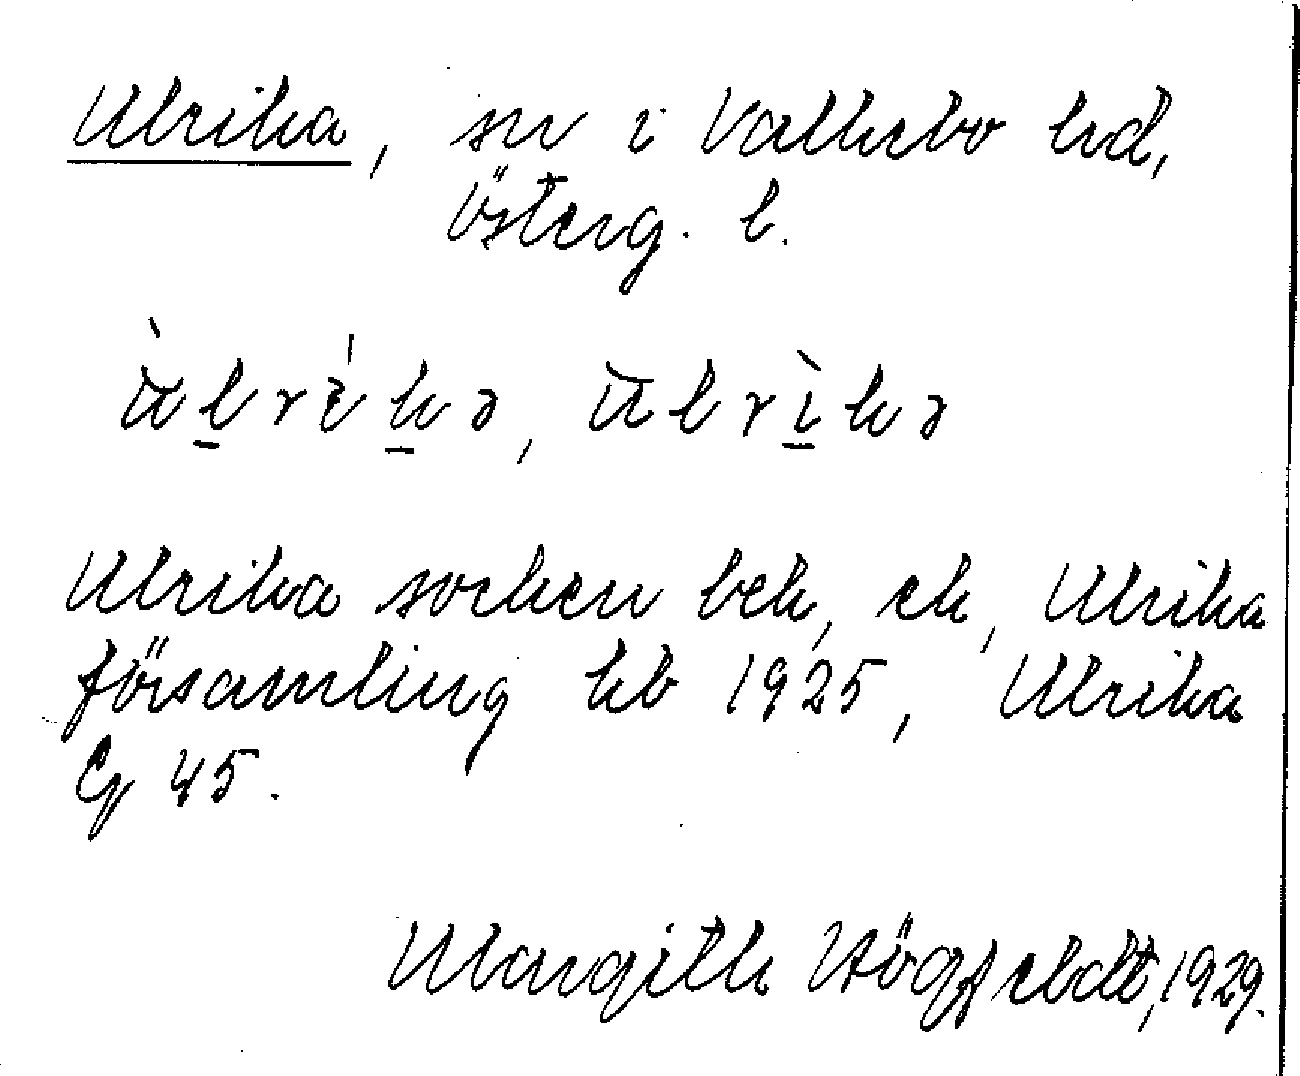 Ulrika, sn i Valkebo hd,
Österg. l.
ùlrík̠ə, ulrìkə
Ulrika socken bek, ek, Ulrika
församling kb 1925, Ulrika
G 45.
Margith Högfeldt, 1929.